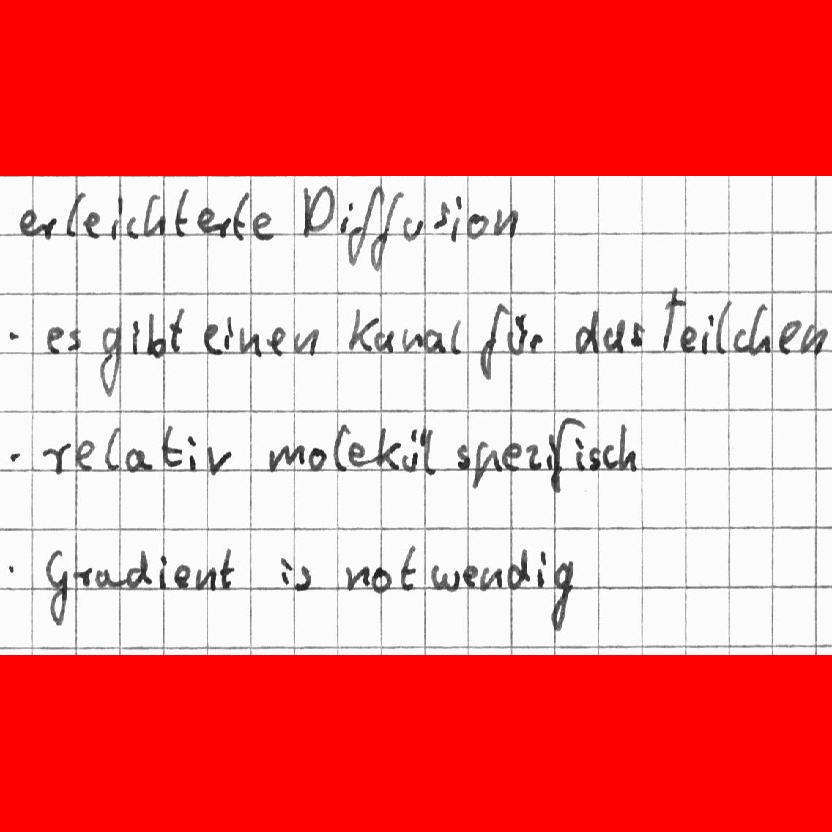 erleichterte Diffusion
· es gibt einen Kanal für das Teilchen
· relativ molekül spezifisch
· Gradient is notwendig